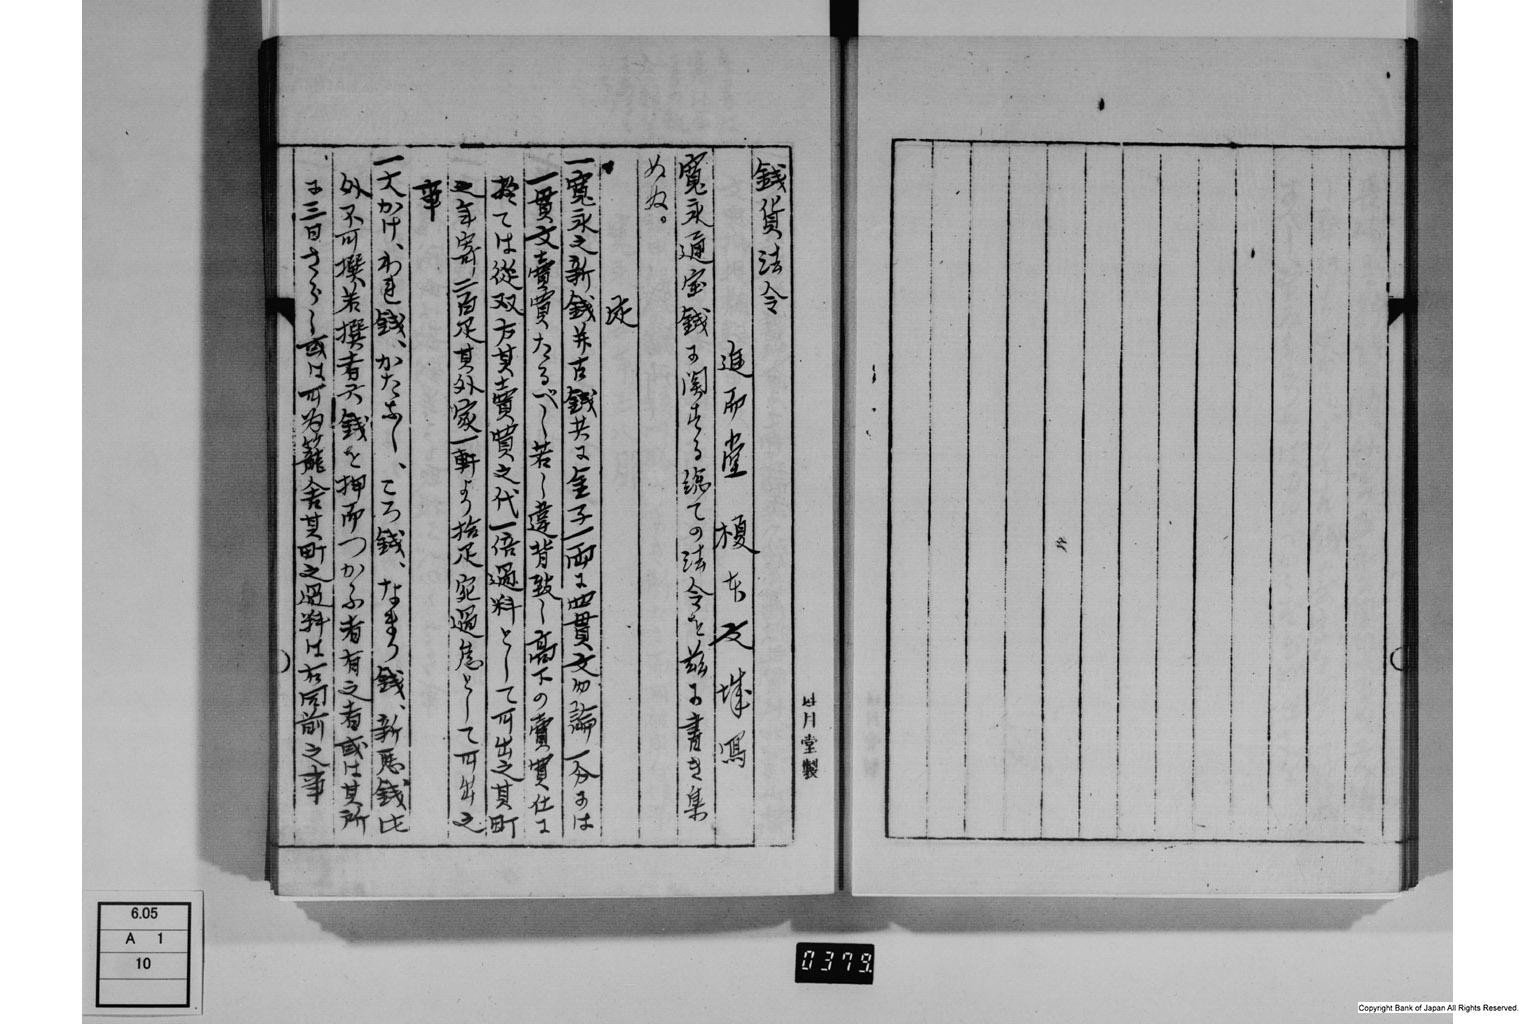 錢貨法令
進而堂 榎本文城寫
寬永通宝錢に関する総ての法令を茲に書き集
めぬ。
定
一寬永之新錢并古錢共に金子一両に四貫文勿論一分には
一貫文賣買たるべし若し違背致し高下の賣買仕に
於ては從双方其賣買之代一倍過料として可出之其町
之年寄二百疋其外家一軒より拾疋宛過怠として可出之
事
一大かけ、われ錢、かたなし、ころ錢、なまり錢、新悪錢此
外不可撰若撰者又錢を押而つかふ者有之者或は其所
に三日さらし或は可為籠舎其町之過料は右同前之事
月堂製
6.05
A 1
10
0379
Copyright Bank of Japan All Rights Reserved.